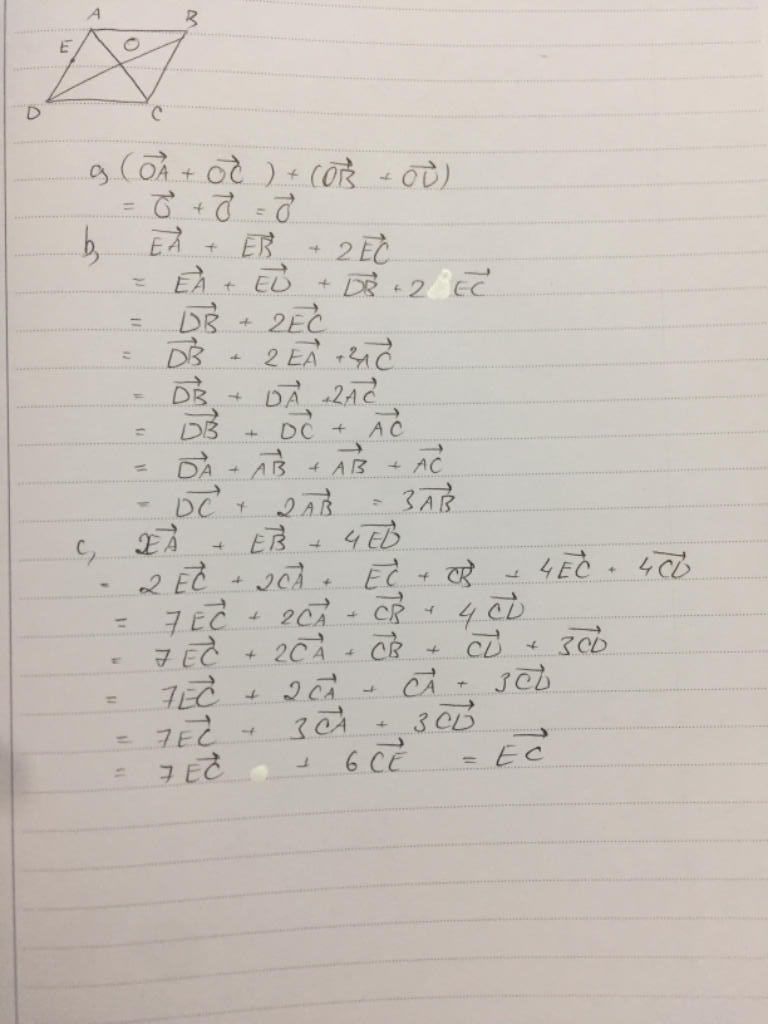 A B
E O
D C
a, (OA⃗ + OC⃗ ) + (OB⃗ + OD⃗)
= O⃗ + O⃗ = O⃗
b, EA⃗ + EB⃗ + 2EC⃗
= EA⃗ + ED⃗ + DB⃗ + 2 EC⃗
= DB⃗ + 2EC⃗
= DB⃗ + 2EA⃗ + 2AC⃗
= DB⃗ + DA⃗ + 2AC⃗
= DB⃗ + DC⃗ + AC⃗
= DA⃗ + AB⃗ + AB⃗ + AC⃗
= DC⃗ + 2AB⃗ = 3AB⃗
c, 2EA⃗ + EB⃗ + 4ED⃗
= 2EC⃗ + 2CA⃗ + EC⃗ + CB⃗ + 4EC⃗ + 4CD⃗
= 7EC⃗ + 2CA⃗ + CB⃗ + 4CD⃗
= 7EC⃗ + 2CA⃗ + CB⃗ + CD⃗ + 3CD⃗
= 7EC⃗ + 2CA⃗ + CA⃗ + 3CD⃗
= 7EC⃗ + 3CA⃗ + 3CD⃗
= 7EC⃗ + 6CE⃗ = EC⃗